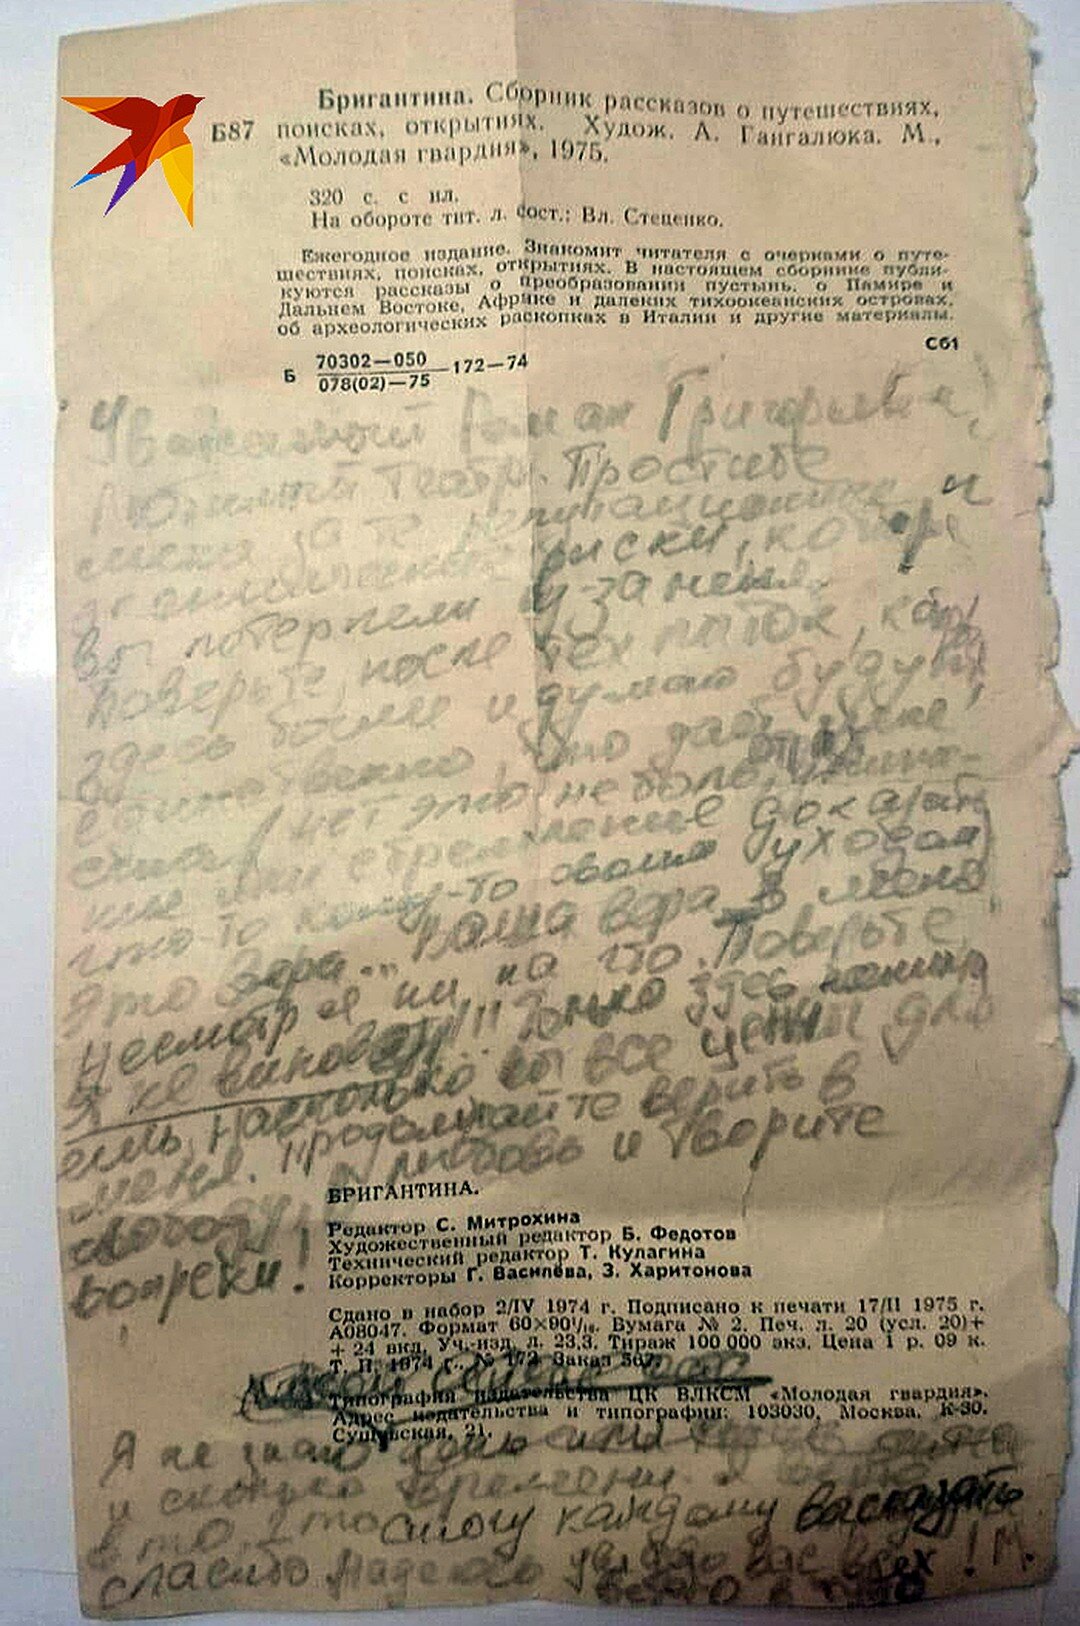 Бригантина. Сборник рассказов о путешествиях,
Б87 поисках, открытиях. Худож. А. Гангалюка. М.,
«Молодая гвардия», 1975.
320 с. с ил.
На обороте тит. л. сост.: Вл. Стеценко.
Ежегодное издание. Знакомит читателя с очерками о путе-
шествиях, поисках, открытиях. В настоящем сборнике публи-
куются рассказы о преобразовании пустынь, о Памире и
Дальнем Востоке, Африке и далеких тихоокеанских островах,
об археологических раскопках в Италии и другие материалы.
Сб1
Б 70302—050
078(02)—75 —172—74
Уважаемый Роман Григорьевич,
Любимый театр. Простите
меня за те репутационные и
риски, которые
вы потерпели из-за меня.
Поверьте, после тех пыток,
здесь были и думаю будут,
единственно, что даёт мне
силы (нет это не боль,
или стремление доказать
что-то кому-то своим уходом)
это вера... Ваша вера в меня
несмотря ни на что. Поверьте,
я не виноват!!! Только здесь понима
ешь, насколько вы все ценны для
меня. Продолжайте верить в
свободу, любовь и творите
вопреки!
БРИГАНТИНА.
Редактор С. Митрохина
Художественный редактор Б. Федотов
Технический редактор Т. Кулагина
Корректоры Г. Василёва, З. Харитонова
Сдано в набор 2/IV 1974 г. Подписано к печати 17/II 1975 г.
А08047. Формат 60×90¹/₁₆. Бумага № 2. Печ. л. 20 (усл. 20)+
+ 24 вкл. Уч.-изд. л. 23,3. Тираж 100 000 экз. Цена 1 р. 09 к.
Т. П. 1974 г., № 172. Заказ 567.
Типография издательства ЦК ВЛКСМ «Молодая гвардия».
Адрес издательства и типографии: 103030, Москва, К-30,
Сущевская, 21.
Я не знаю
и сколько времени. Я верю
в то, что смогу каждому вас сказать
спасибо Надеюсь увижу вас всех! М.